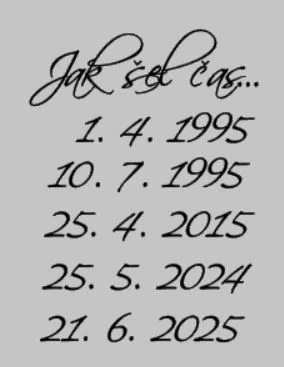 Jak šel čas...
1. 4. 1995
10. 7. 1995
25. 4. 2015
25. 5. 2024
21. 6. 2025